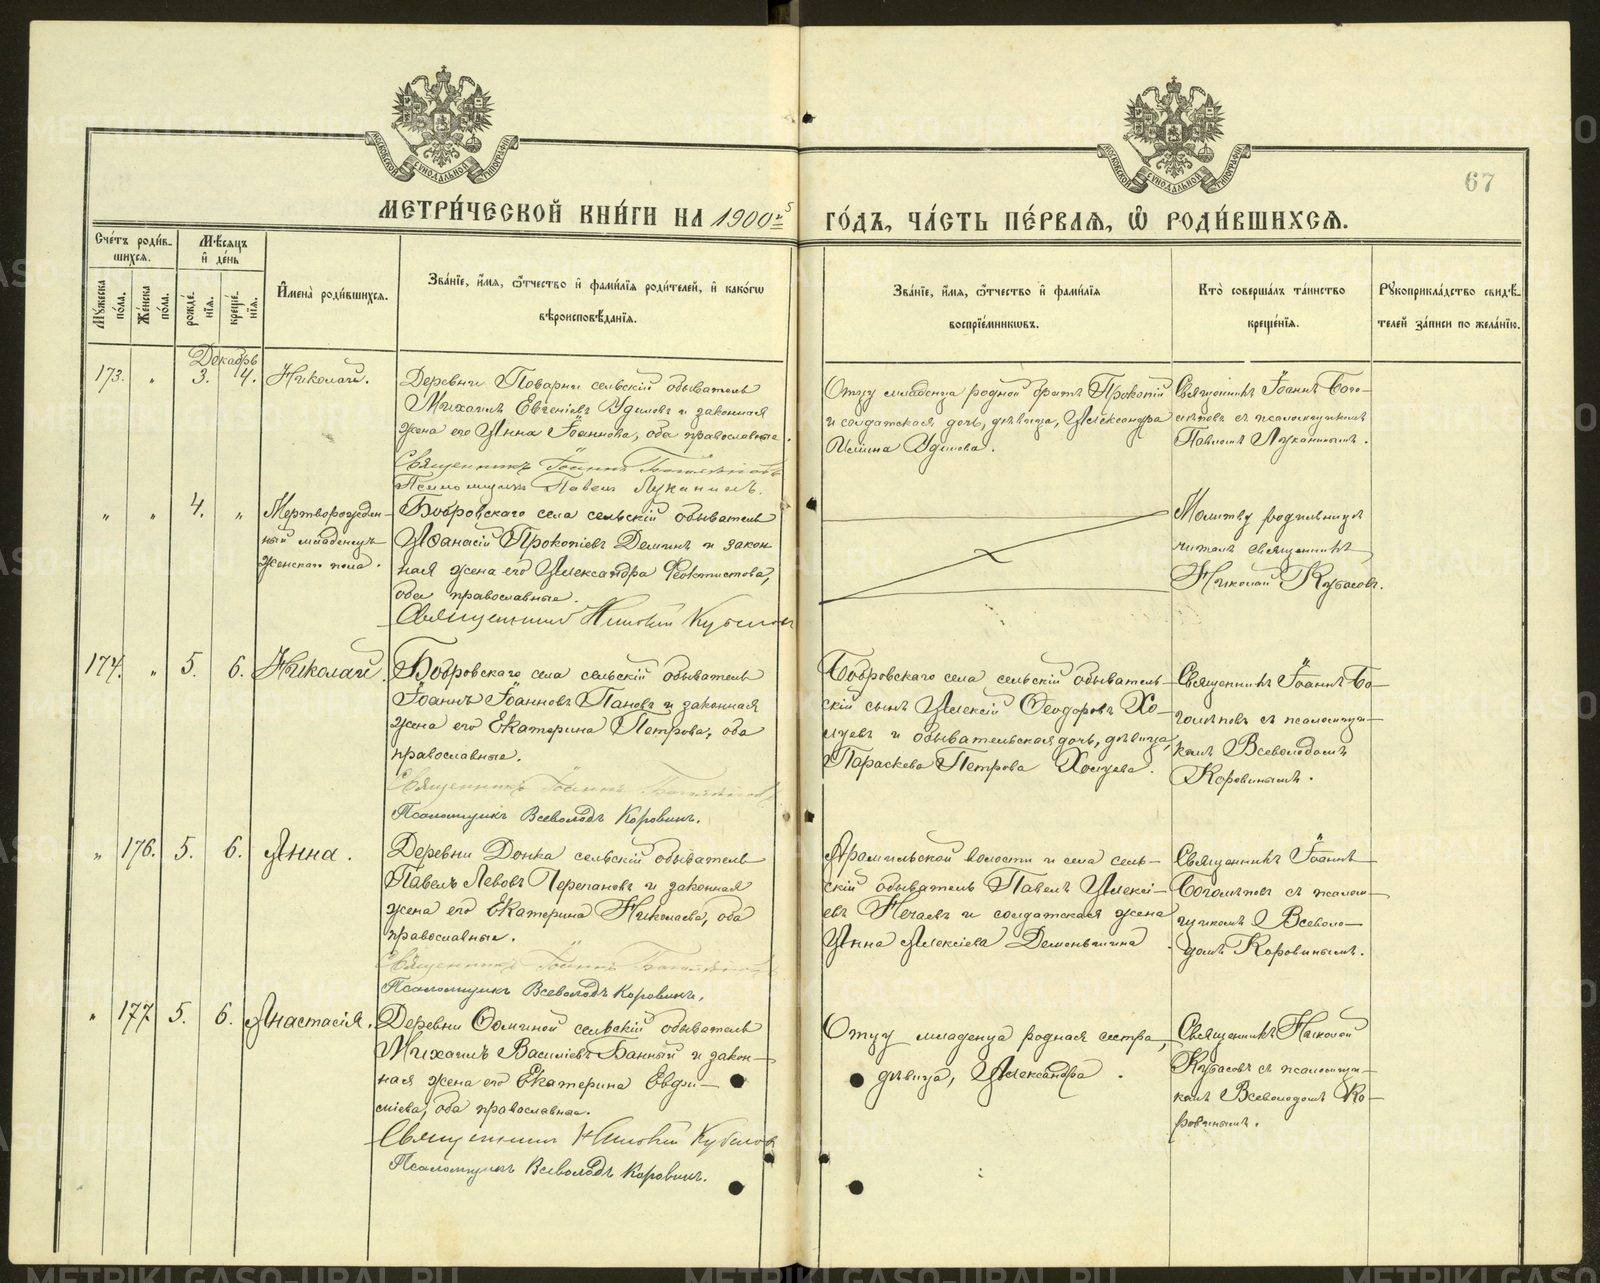 МОСКОВСКОЙ СѴНОДАЛЬНОЙ ТИПОГРАФІИ
МОСКОВСКОЙ СѴНОДАЛЬНОЙ ТИПОГРАФІИ
67
МЕТРИ́ЧЕСКОЙ КНИ́ГИ НА 1900й
ГО́ДЪ, ЧА́СТЬ ПЕ́РВАѦ, Ѡ РОДИ́ВШИХСѦ.
Сче́тъ роди́в-
шихсѧ.
Мꙋ́жеска по́ла.
Же́нска по́ла.
Мѣ́сѧцъ и҆ де́нь
рожде́-нїѧ.
креще́-нїѧ.
И҆мена̀ роди́вшихсѧ.
Зва́нїе, и҆́мѧ, ѻ҆́тчество и҆ фами́лїѧ роди́телей, и҆ како́гѡ
вѣроисповѣ́данїѧ.
Зва́нїе, и҆́мѧ, ѻ҆́тчество и҆ фами́лїѧ
воспрїе́мникѡвъ.
Кто̀ соверша́лъ та́инство
креще́нїѧ.
Рꙋкоприкла́дство свидѣ́-
телей за́писи по жела́нїю.
Декабрь
173. " 3. 4. Николай.
Деревни Поварни сельскій обыватель
Михаилъ Евгеніевъ Удиловъ и законная
жена его Анна Іоаннова, оба православные.
Священникъ Іоаннъ Боголѣповъ
Псаломщикъ Павелъ Луканинъ.
Отцу младенца родной братъ Прокопій
и солдатская дочь, дѣвица, Александра
Удилова.
Священникъ Іоаннъ Бого-
лѣповъ съ псаломщикомъ
Павломъ Луканинымъ.
" " 4. " Мертворожден-
ный младенецъ
женскаго пола.
Бобровскаго села сельскій обыватель
Аѳанасій Прокопіевъ Деминъ и закон-
ная жена его Александра Ѳеоктистова,
оба православные.
Священникъ Николай Кубасовъ
Молитву родильницѣ
читалъ священникъ
Николай Кубасовъ.
174. " 5. 6. Николай.
Бобровскаго села сельскій обыватель
Іоаннъ Іоанновъ Пановъ и законная
жена его Екатерина Петрова, оба
православные.
Священникъ Іоаннъ Боголѣповъ
Псаломщикъ Всеволодъ Коровинъ.
Бобровскаго села сельскій обыватель-
скій сынъ Алексій Ѳеодоровъ Хо-
муевъ и обывательская дочь, дѣвица,
Параскева Петрова
Священникъ Іоаннъ Бо-
голѣповъ съ псаломщи-
комъ Всеволодомъ
Коровинымъ.
" 176. 5. 6. Анна.
Деревни Донка сельскій обыватель
Павелъ Левовъ Черепановъ и законная
жена его Екатерина Николаева, оба
православные.
Священникъ Іоаннъ Боголѣповъ
Псаломщикъ Всеволодъ Коровинъ.
Арамильской волости и села сель-
скій обыватель Павелъ Алексі-
евъ Нечаевъ и солдатская жена
Анна Алексіева Деменьшина
Священникъ Іоаннъ
Боголѣповъ съ псалом-
щикомъ Всеволо-
домъ Коровинымъ.
" 177. 5. 6. Анастасія.
Деревни Ѳоминой сельскій обыватель
Михаилъ Василіевъ Банный и закон-
ная жена его Екатерина Евфи-
міева, оба православные.
Священникъ Николай Кубасовъ
Псаломщикъ Всеволодъ Коровинъ.
Отцу младенца родная сестра,
дѣвица, Александра.
Священникъ Николай
Кубасовъ съ псаломщи-
комъ Всеволодомъ Ко-
ровинымъ.
METRIKI.GASO-URAL.RU